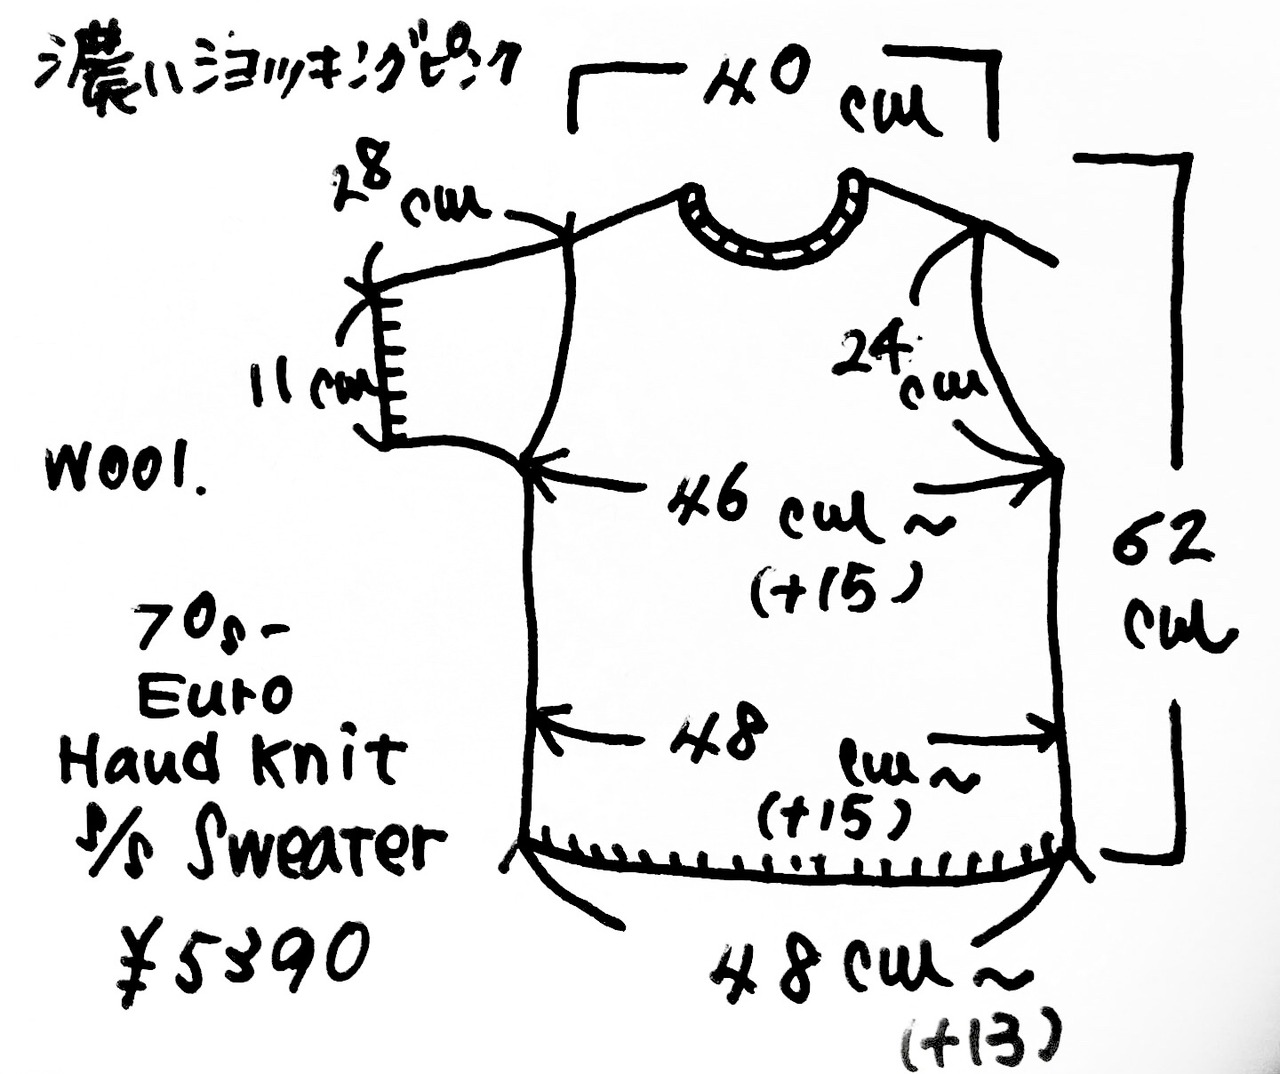 濃いショッキングピンク
40 cm
28 cm
24 cm
11 cm
wool.
46 cm~
(+15)
62 cm
70s-
Euro
Hand Knit
s/s Sweater
¥5390
48 cm~
(+15)
48 cm~
(+13)